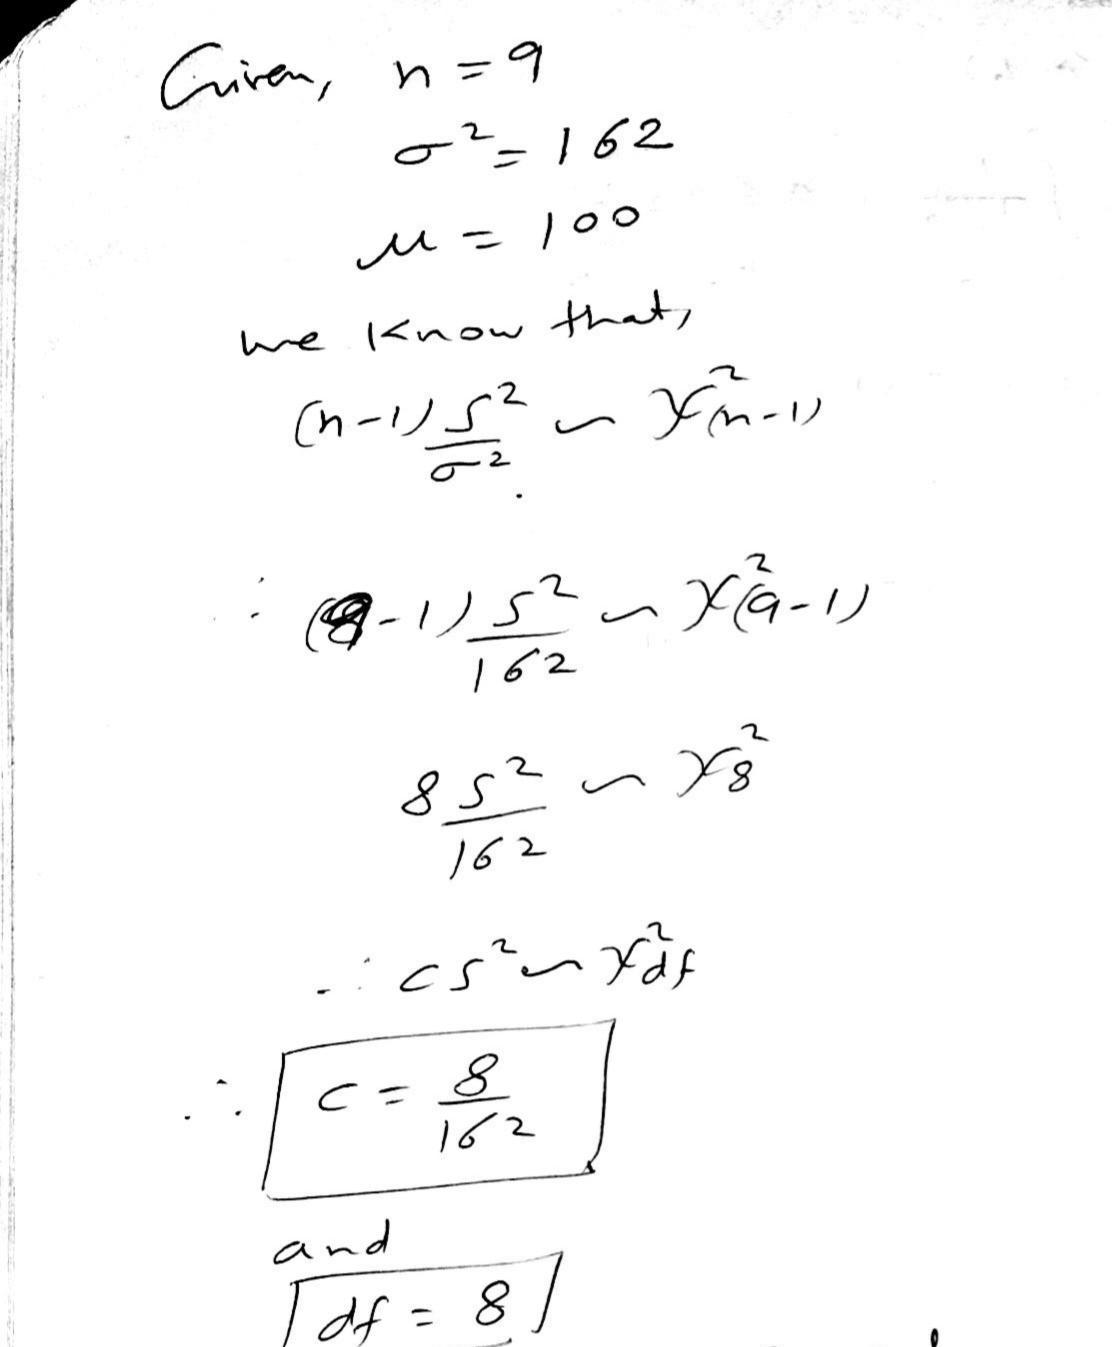 Given, n = 9
σ² = 162
μ = 100
we know that,
(n-1) S²/σ² ~ χ²(n-1)
∴ (9-1) S²/162 ~ χ²(9-1)
8 S²/162 ~ χ²8
∴ cS² ~ χ²df
∴ c = 8/162
and
df = 8